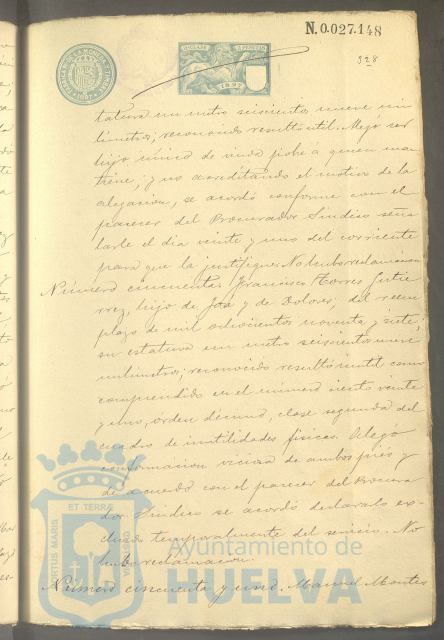 N.0.027.148
328
1897
tatura un metro seiscientos nueve mi
límetros; reconocido resultó útil. Alegó ser
hijo único de viuda pobre á quien man
tiene; y no acreditando el motivo de la
alegacion, se acordó conforme con el
parecer del Procurador Síndico seña
larle el dia veinte y uno del corriente
para que la justifique. No hubo reclamacion
Número cincuenta. Francisco Torres Gutie
rrez, hijo de José y de Dolores, del reem
plazo de mil ochocientos noventa y siete,
su estatura un metro seiscientos nueve
milímetros; reconocido resultó inútil como
comprendido en el número ciento veinte
y uno, órden décimo, clase segunda del
cuadro de inutilidades físicas. Alegó
conformacion viciosa de ambos piés y
de acuerdo con el parecer del Procura
dor Síndico se acordó declararlo ex-
cluido temporalmente del servicio. No
hubo reclamacion.
Número cincuenta y uno. Manuel Montes
PORTUS MARIS ET TERRÆ
Ayuntamiento de
HUELVA